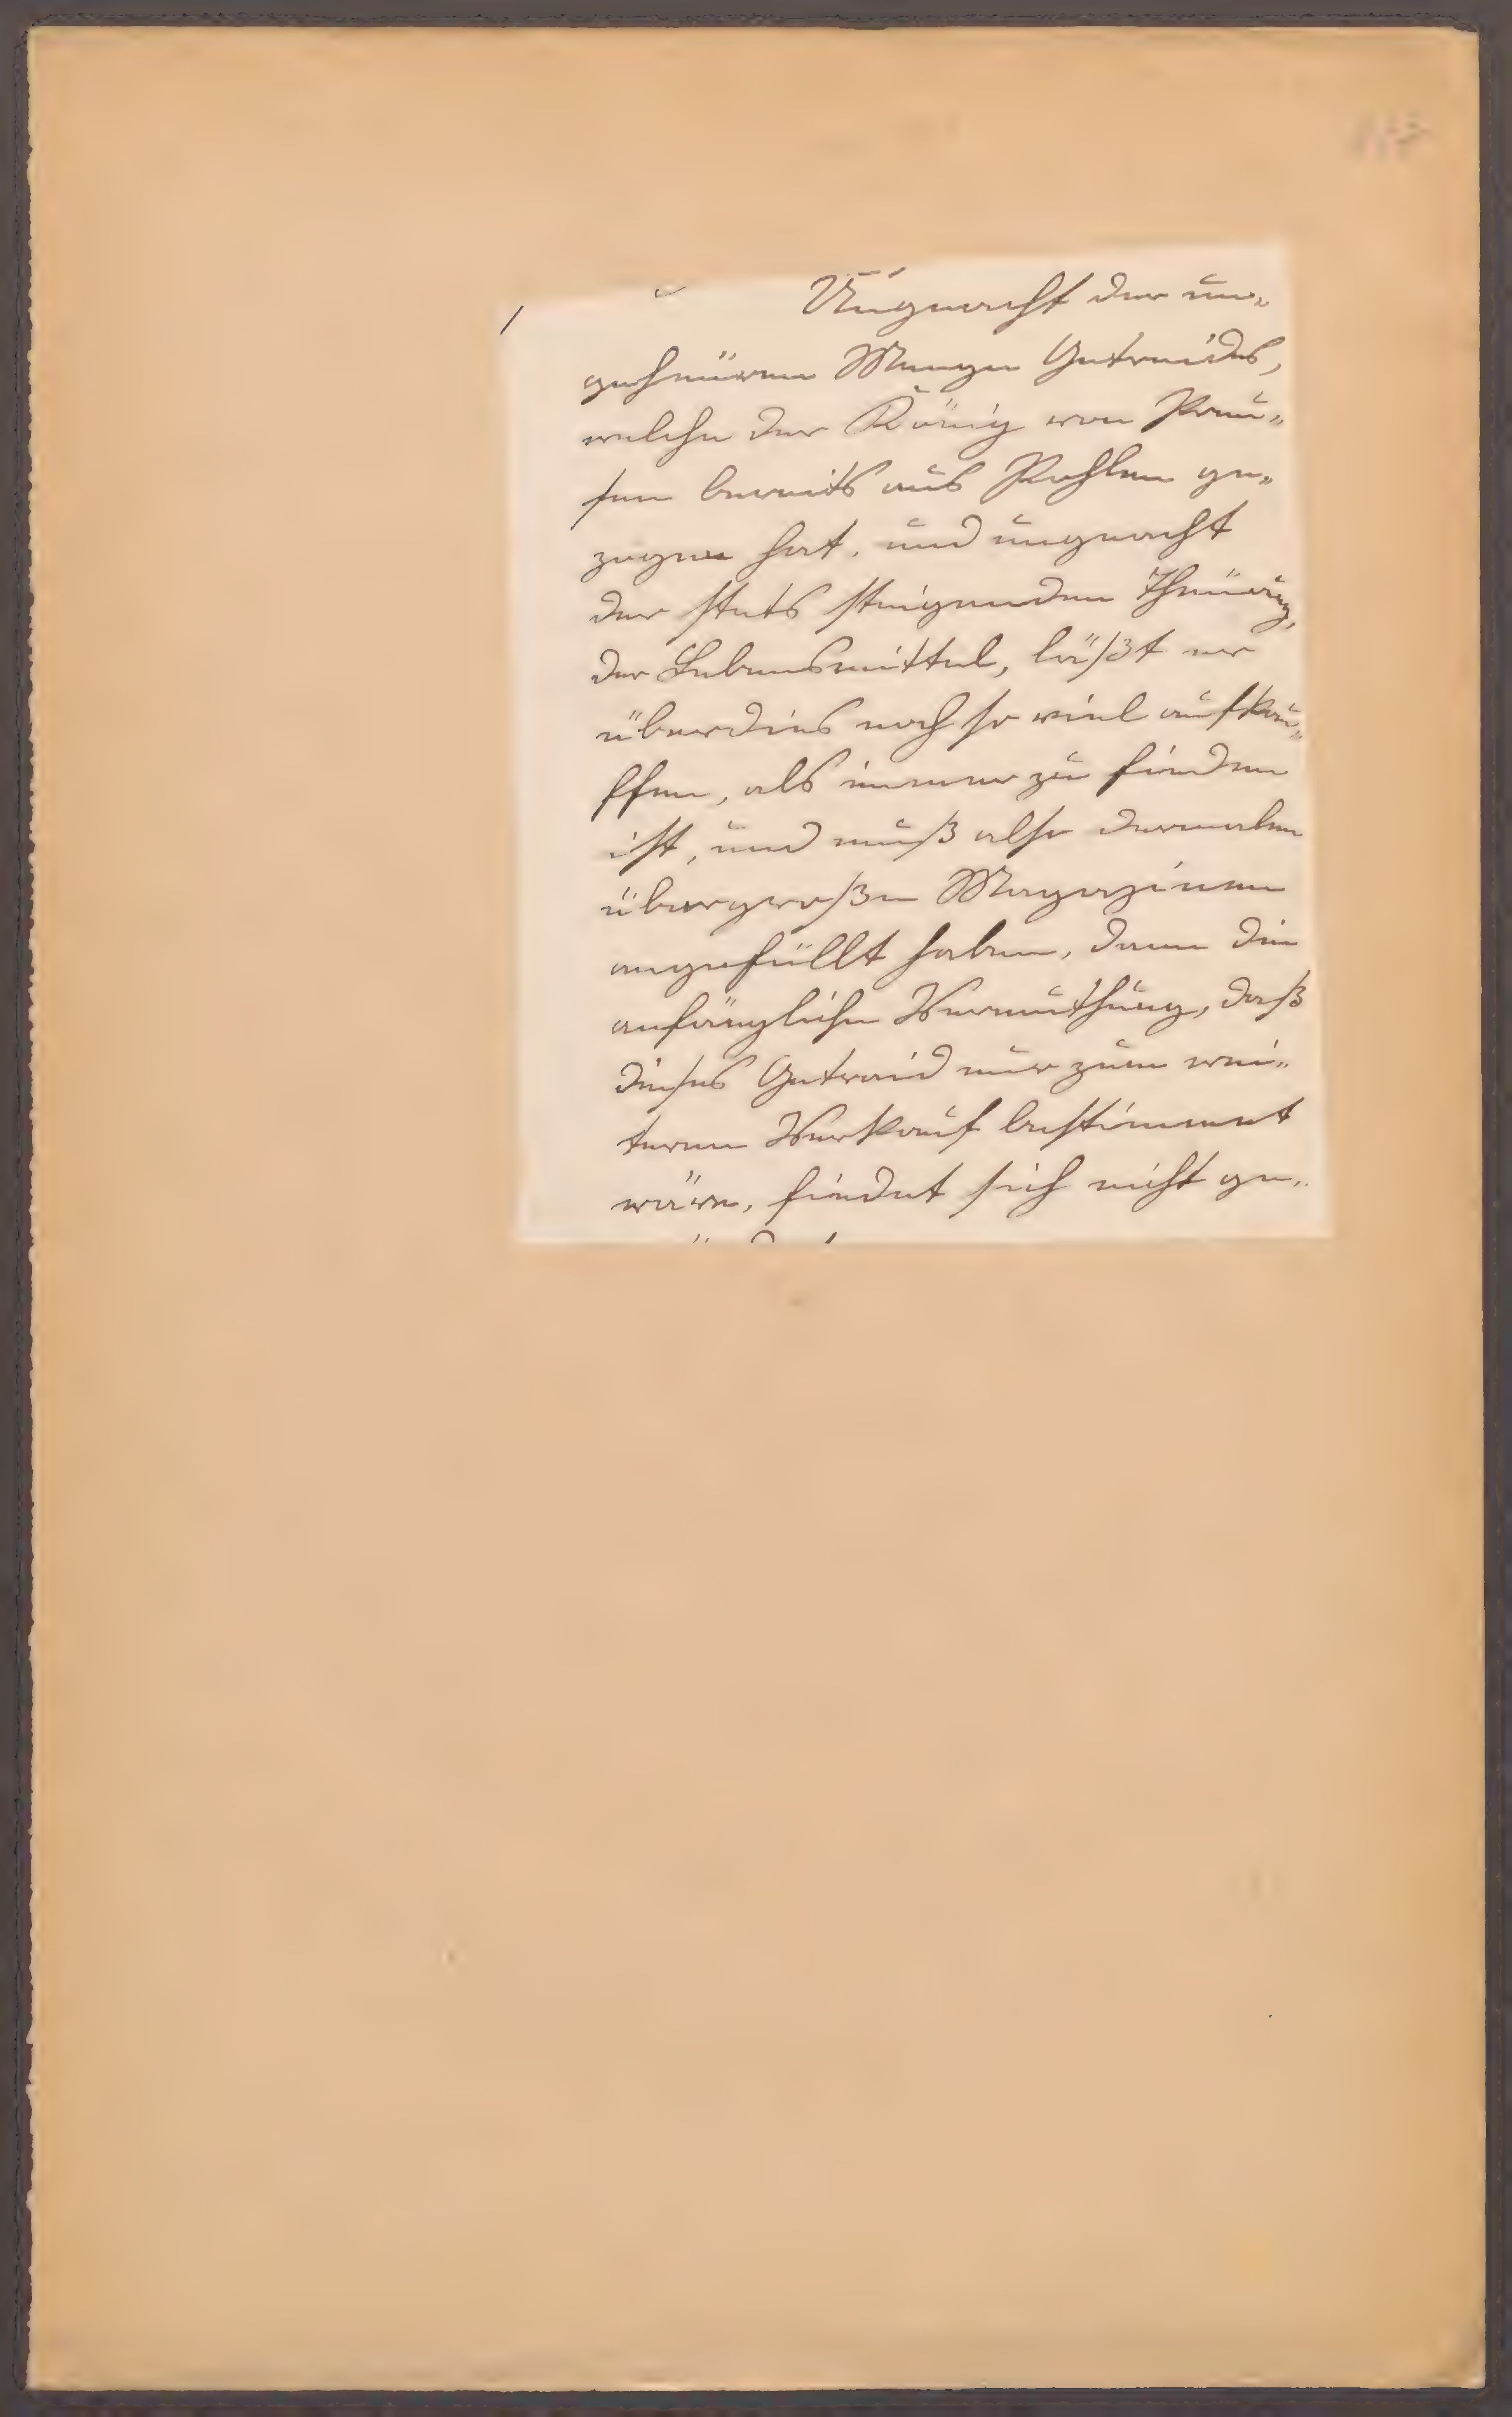 Ungeacht der un„
geheüren Menge Getreides,
welche der König von Preu„
sen bereits aus Pohlen ge„
zogen hat, und ungeacht
der stets steigenden Theürung,
der Lebensmittel, läßt er
überdies noch so viel aufkau„
ffen, als immer zu finden
ist, und muß also dermalen
übergroße Magazinen
angefüllt haben, dann die
anfängliche Vermuthung, daß
dieses Getraid nur zum wei„
teren Verkauf bestimmet
wäre, findet sich nicht ge„